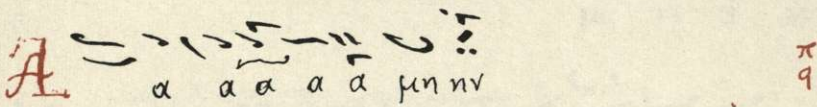 Α α α α α α μη νν
π
q